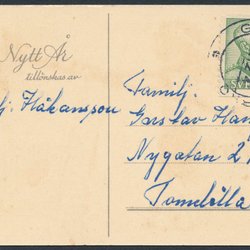 Nytt År
tillönskas av
j: Håkansson
Familj.
Garstav Han
Nygatan 2
Tomelilla